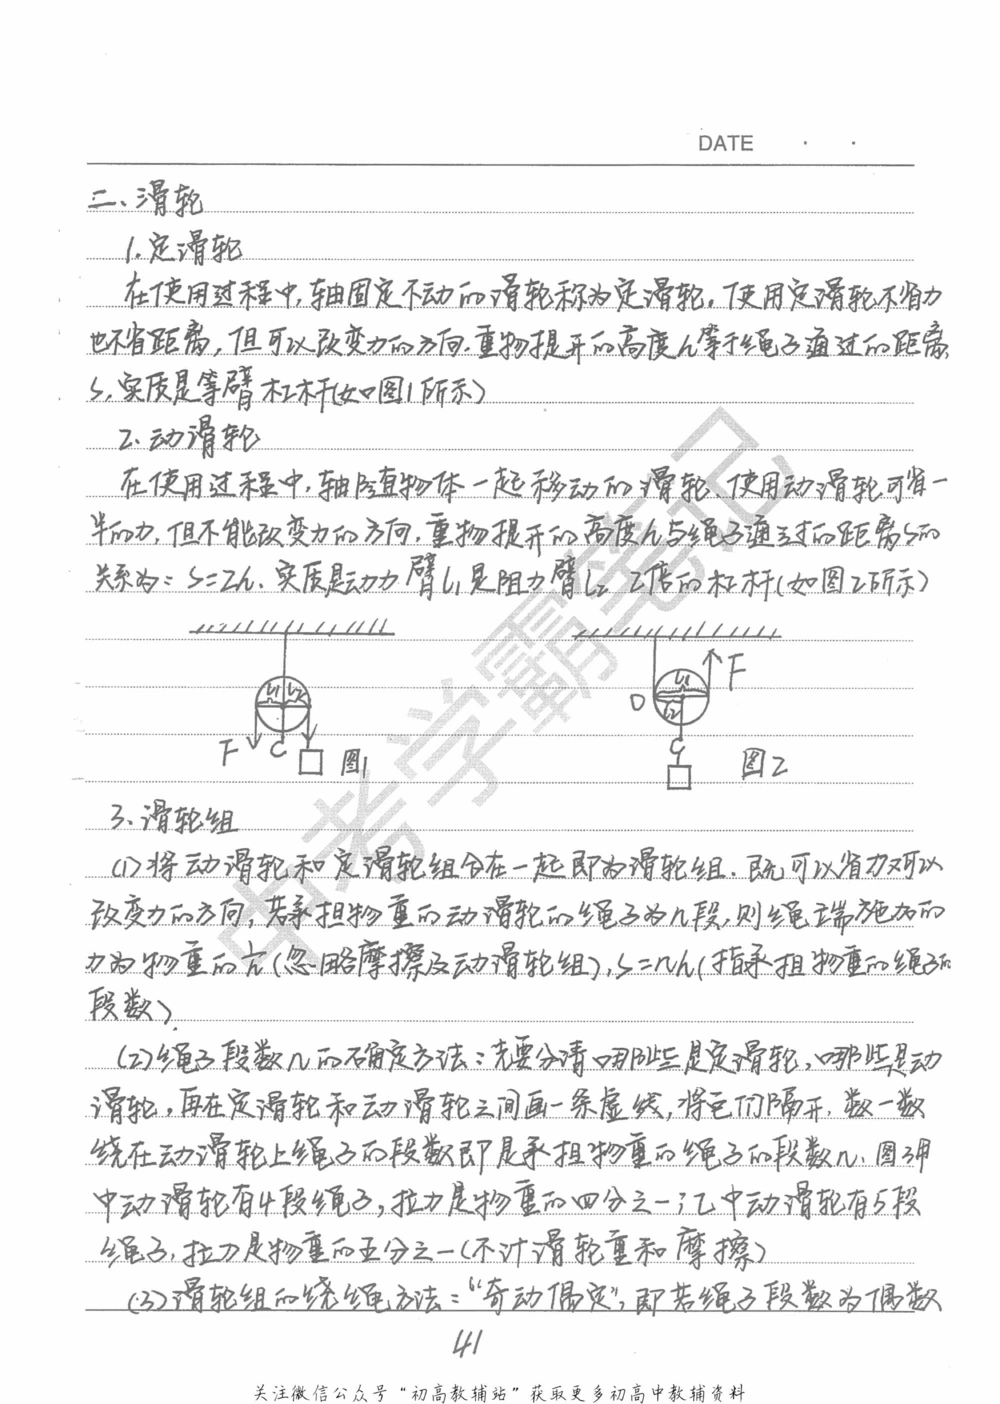 DATE · ·
二、滑轮
1.定滑轮
在使用过程中,轴固定不动的滑轮称为定滑轮,使用定滑轮不省力
也不省距离,但可以改变力的方向.重物提升的高度h等于绳子通过的距离
S,实质是等臂杠杆(如图1所示)
2.动滑轮
在使用过程中,轴随物体一起移动的滑轮、使用动滑轮可省一
半的力,但不能改变力的方向.重物提升的高度h与绳子通过的距离S的
关系为:S=2h.实质是动力臂L1是阻力臂L2 2倍的杠杆(如图2所示)
L1 L2
F C 图1
L1
L2
O F
C
图2
3.滑轮组
(1)将动滑轮和定滑轮组合在一起即为滑轮组.既可以省力又可以
改变力的方向,若承担物重的动滑轮的绳子为n段,则绳端施加的
力为物重的1/n(忽略摩擦及动滑轮组),S=nh(指承担物重的绳子的
段数)
(2)绳子段数n的确定方法:先要分清哪些是定滑轮,哪些是动
滑轮,再在定滑轮和动滑轮之间画一条虚线,将它们隔开,数一数
绕在动滑轮上绳子的段数即是承担物重的绳子的段数n.图3甲
中动滑轮有4段绳子,拉力是物重的四分之一;乙中动滑轮有5段
绳子,拉力是物重的五分之一(不计滑轮重和摩擦)
(3)滑轮组的绕绳方法:“奇动偶定”,即若绳子段数为偶数
41
关注微信公众号“初高教辅站”获取更多初高中教辅资料
中考学霸笔记